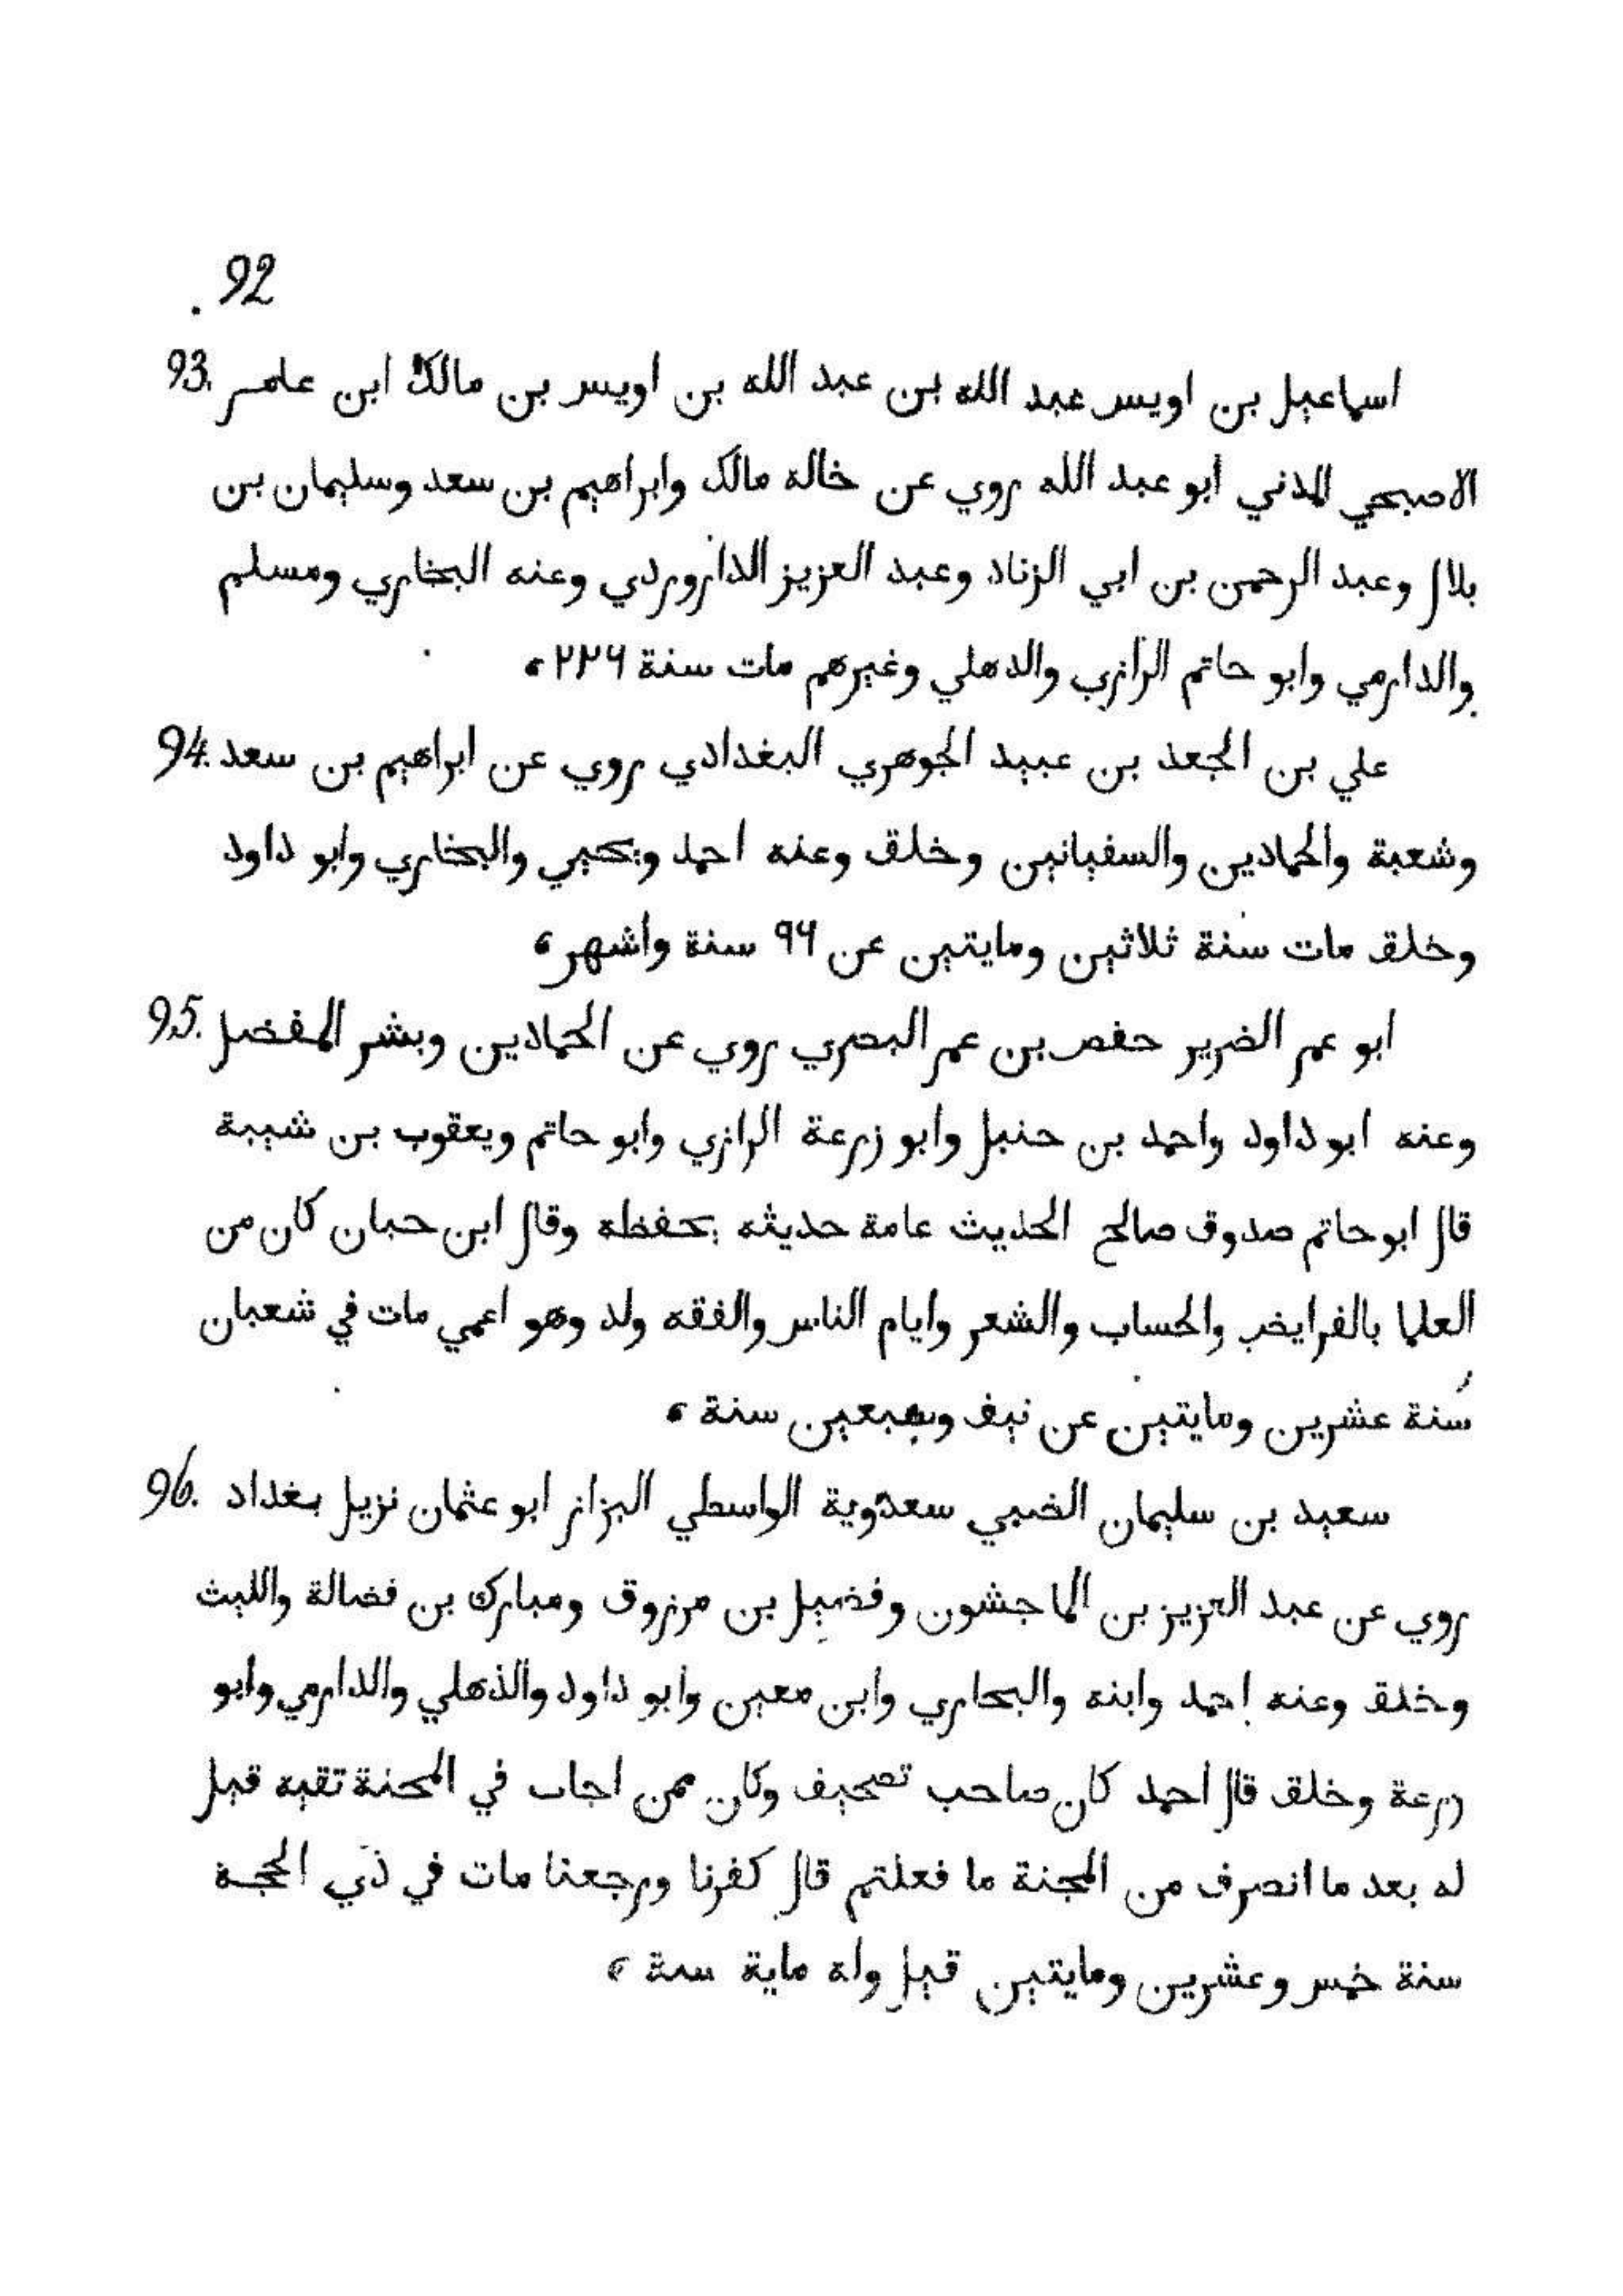 92.
اسماعيل بن اويس عبد الله بن عبد الله بن اويس بن مالك ابن عامر 93.
الاصبحي المدني ابو عبد الله روي عن خالة مالك وابراهيم بن سعد وسليمان بن
بلال وعبد الرحمن بن ابي الزناد وعبد العزيز الداروردي وعنه البخاري ومسلم
والدارمي وابو حاتم الرازي والدهلي وغيرهم مات سنة ٢٢٦ ،
علي بن الجعد بن عبيد الجوهري البغدادي روي عن ابراهيم بن سعد 94.
وشعبة والحمادين والسفيانين وخلق وعنه احمد ويحيي والبخاري وابو داود
وخلق مات سنة ثلاثين ومايتين عن ٩٦ سنة واشهر ،
ابو عمر الضرير حفص بن عمر البصري روي عن الحمادين وبشر المفضل 95.
وعنه ابو داود واحمد بن حنبل وابو زرعة الرازي وابو حاتم ويعقوب بن شيبة
قال ابو حاتم صدوق صالح الحذيث عامة حديثه يحفظه وقال ابن حبان كان من
العلما بالفرايض والحساب والشعر وايام الناس والفقه ولد وهو اعمي مات في شعبان
سنة عشرين ومايتين عن نيف وسبعين سنة ،
سعيد بن سليمان الضبي سعدوية الواسطي البزاز ابو عثمان نزيل بغداد 96.
روي عن عبد العزيز بن الماجشون وفضيل بن مرزوق ومبارك بن فضالة والليث
وخلق وعنه احمد وابنه والبحاري وابن معين وابو داود والذهلي والدارمي وابو
زرعة وخلق قال احمد كان صاحب تصحيف وكان ممن اجاب في المحنة تقية قيل
له بعد ما انصرف من المجنة ما فعلتم قال كفرنا ورجعنا مات في ذي الحجة
سنة خمس وعشرين ومايتين قيل وله ماية سنة ،